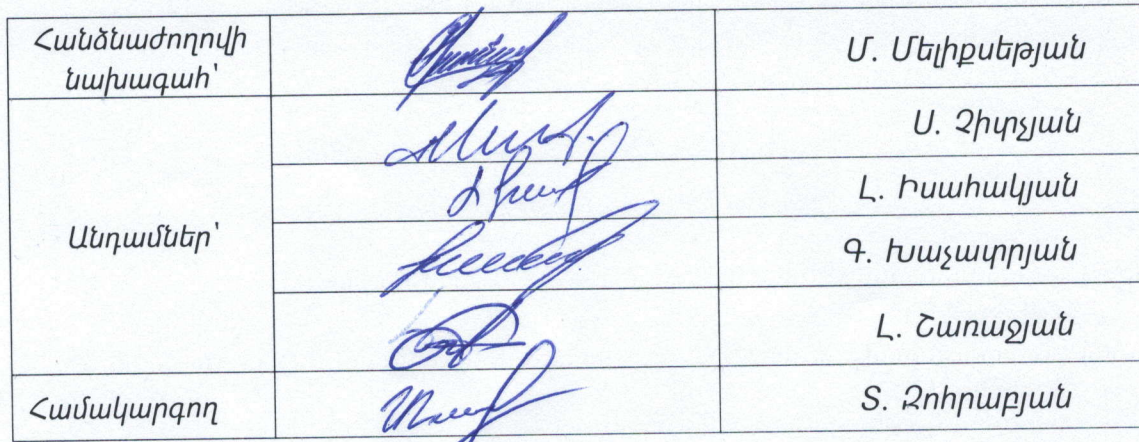 Հանձնաժողովի
նախագահ՝
Մ. Մելիքսեթյան
Անդամներ՝
Ս. Չիրչյան
Լ. Իսահակյան
Գ. Խաչատրյան
Լ. Շառաջյան
Համակարգող
Տ. Զոհրաբյան